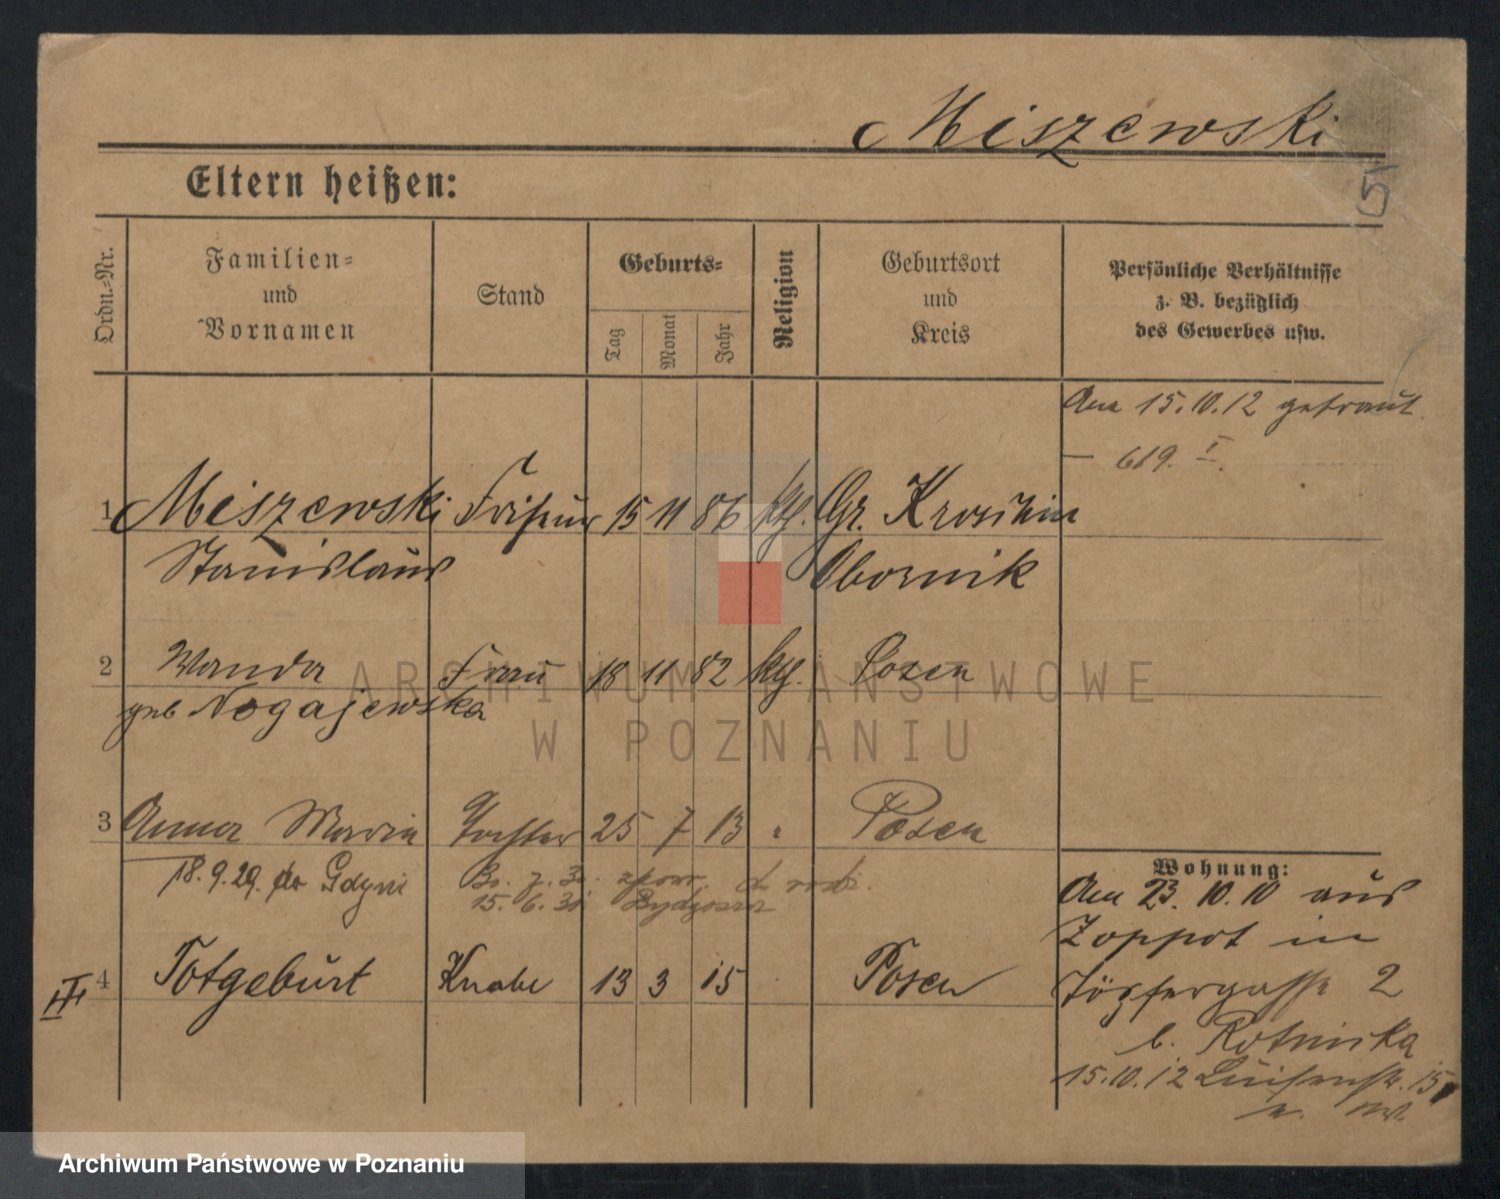 Miszewski
5
Eltern heißen:
Ordn.-Nr.
Familien-
und
Vornamen
Stand
Geburts-
Tag
Monat
Jahr
Religion
Geburtsort
und
Kreis
Persönliche Verhältnisse
z. B. bezüglich
des Gewerbes usw.
Am 15.10.12 getraut
— 619. I.
1 Miszewski Friseur 15 11 86 kth. Gr. Kroschin
Stanislaus Obornik
2 Wanda Frau 18 11 82 kth. Posen
geb Nogajewska
ARCHIWUM PAŃSTWOWE
W POZNANIU
3 Anna Maria Tochter 25 7 13 Posen
18.9.29. do Gdyni
15. 6. 31 Bydgoszcz
4 Totgeburt Knabe 13 3 15 Posen
III
Wohnung:
Am 23.10.10 aus
Zoppot in
Töpfergasse 2
b. Rotnicka
15.10.12 Luisenstr. 15
Archiwum Państwowe w Poznaniu